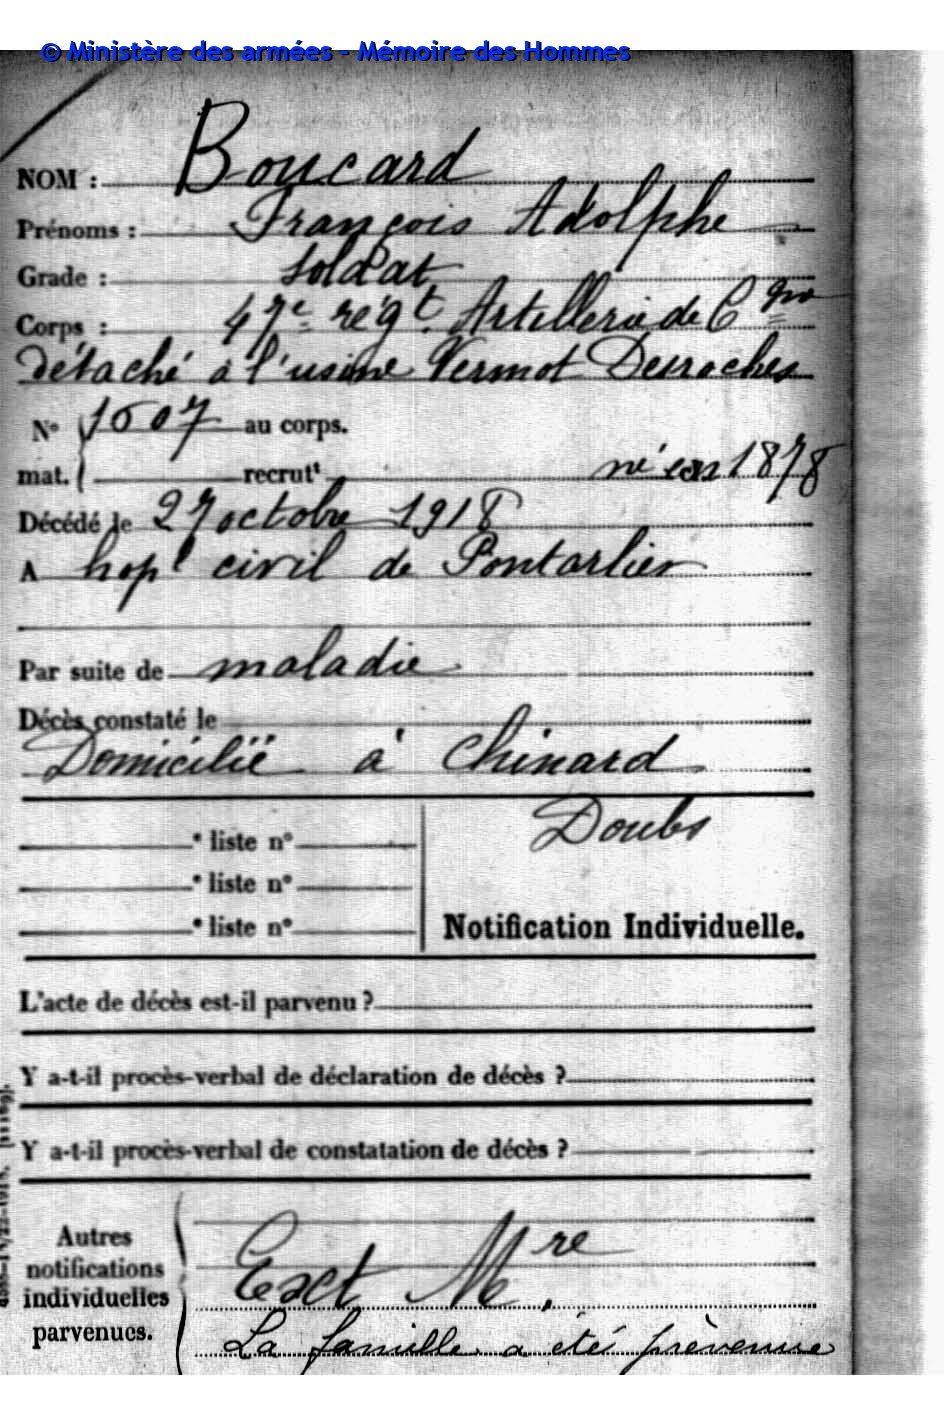 © Ministère des armées - Mémoire des Hommes
NOM : Boucard
Prénoms : François Adolphe
Grade : soldat
Corps : 47e régt. Artillerie de Cgne
détaché à l'usine Vermot Desroches
No 1607 au corps.
mat. recrutt né en 1878
Décédé le 27 octobre 1918
A hopl civil de Pontarlier
Par suite de maladie
Décès constaté le
Domicilié à Chinard
Doubs
e liste no
e liste no
e liste no
Notification Individuelle.
L'acte de décès est-il parvenu ?
Y a-t-il procès-verbal de déclaration de décès ?
Y a-t-il procès-verbal de constatation de décès ?
Autres
notifications
individuelles
parvenues.
Ext Mre.
La famille a été prévenue